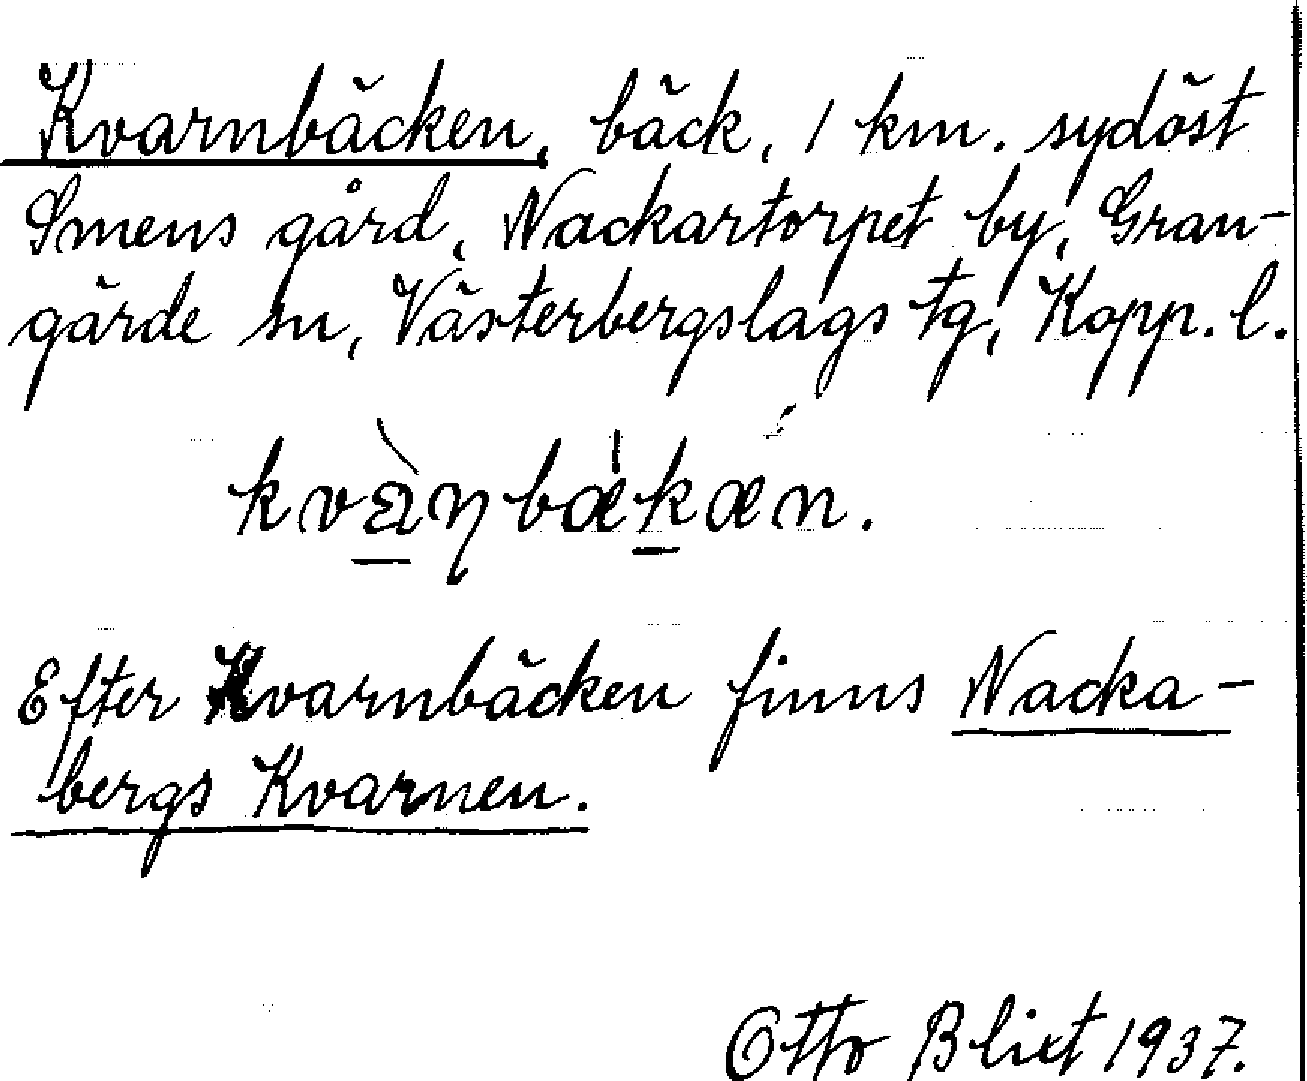 Kvarnbäcken, bäck, 1 km. sydöst
Smens gård, Nackartorpet by, Gran-
gärde sn, Västerbergslags tg, Kopp. l.
kvàɳbækæn.
Efter Kvarnbäcken finns Nacka-
bergs Kvarnen.
Otto Blixt 1937.